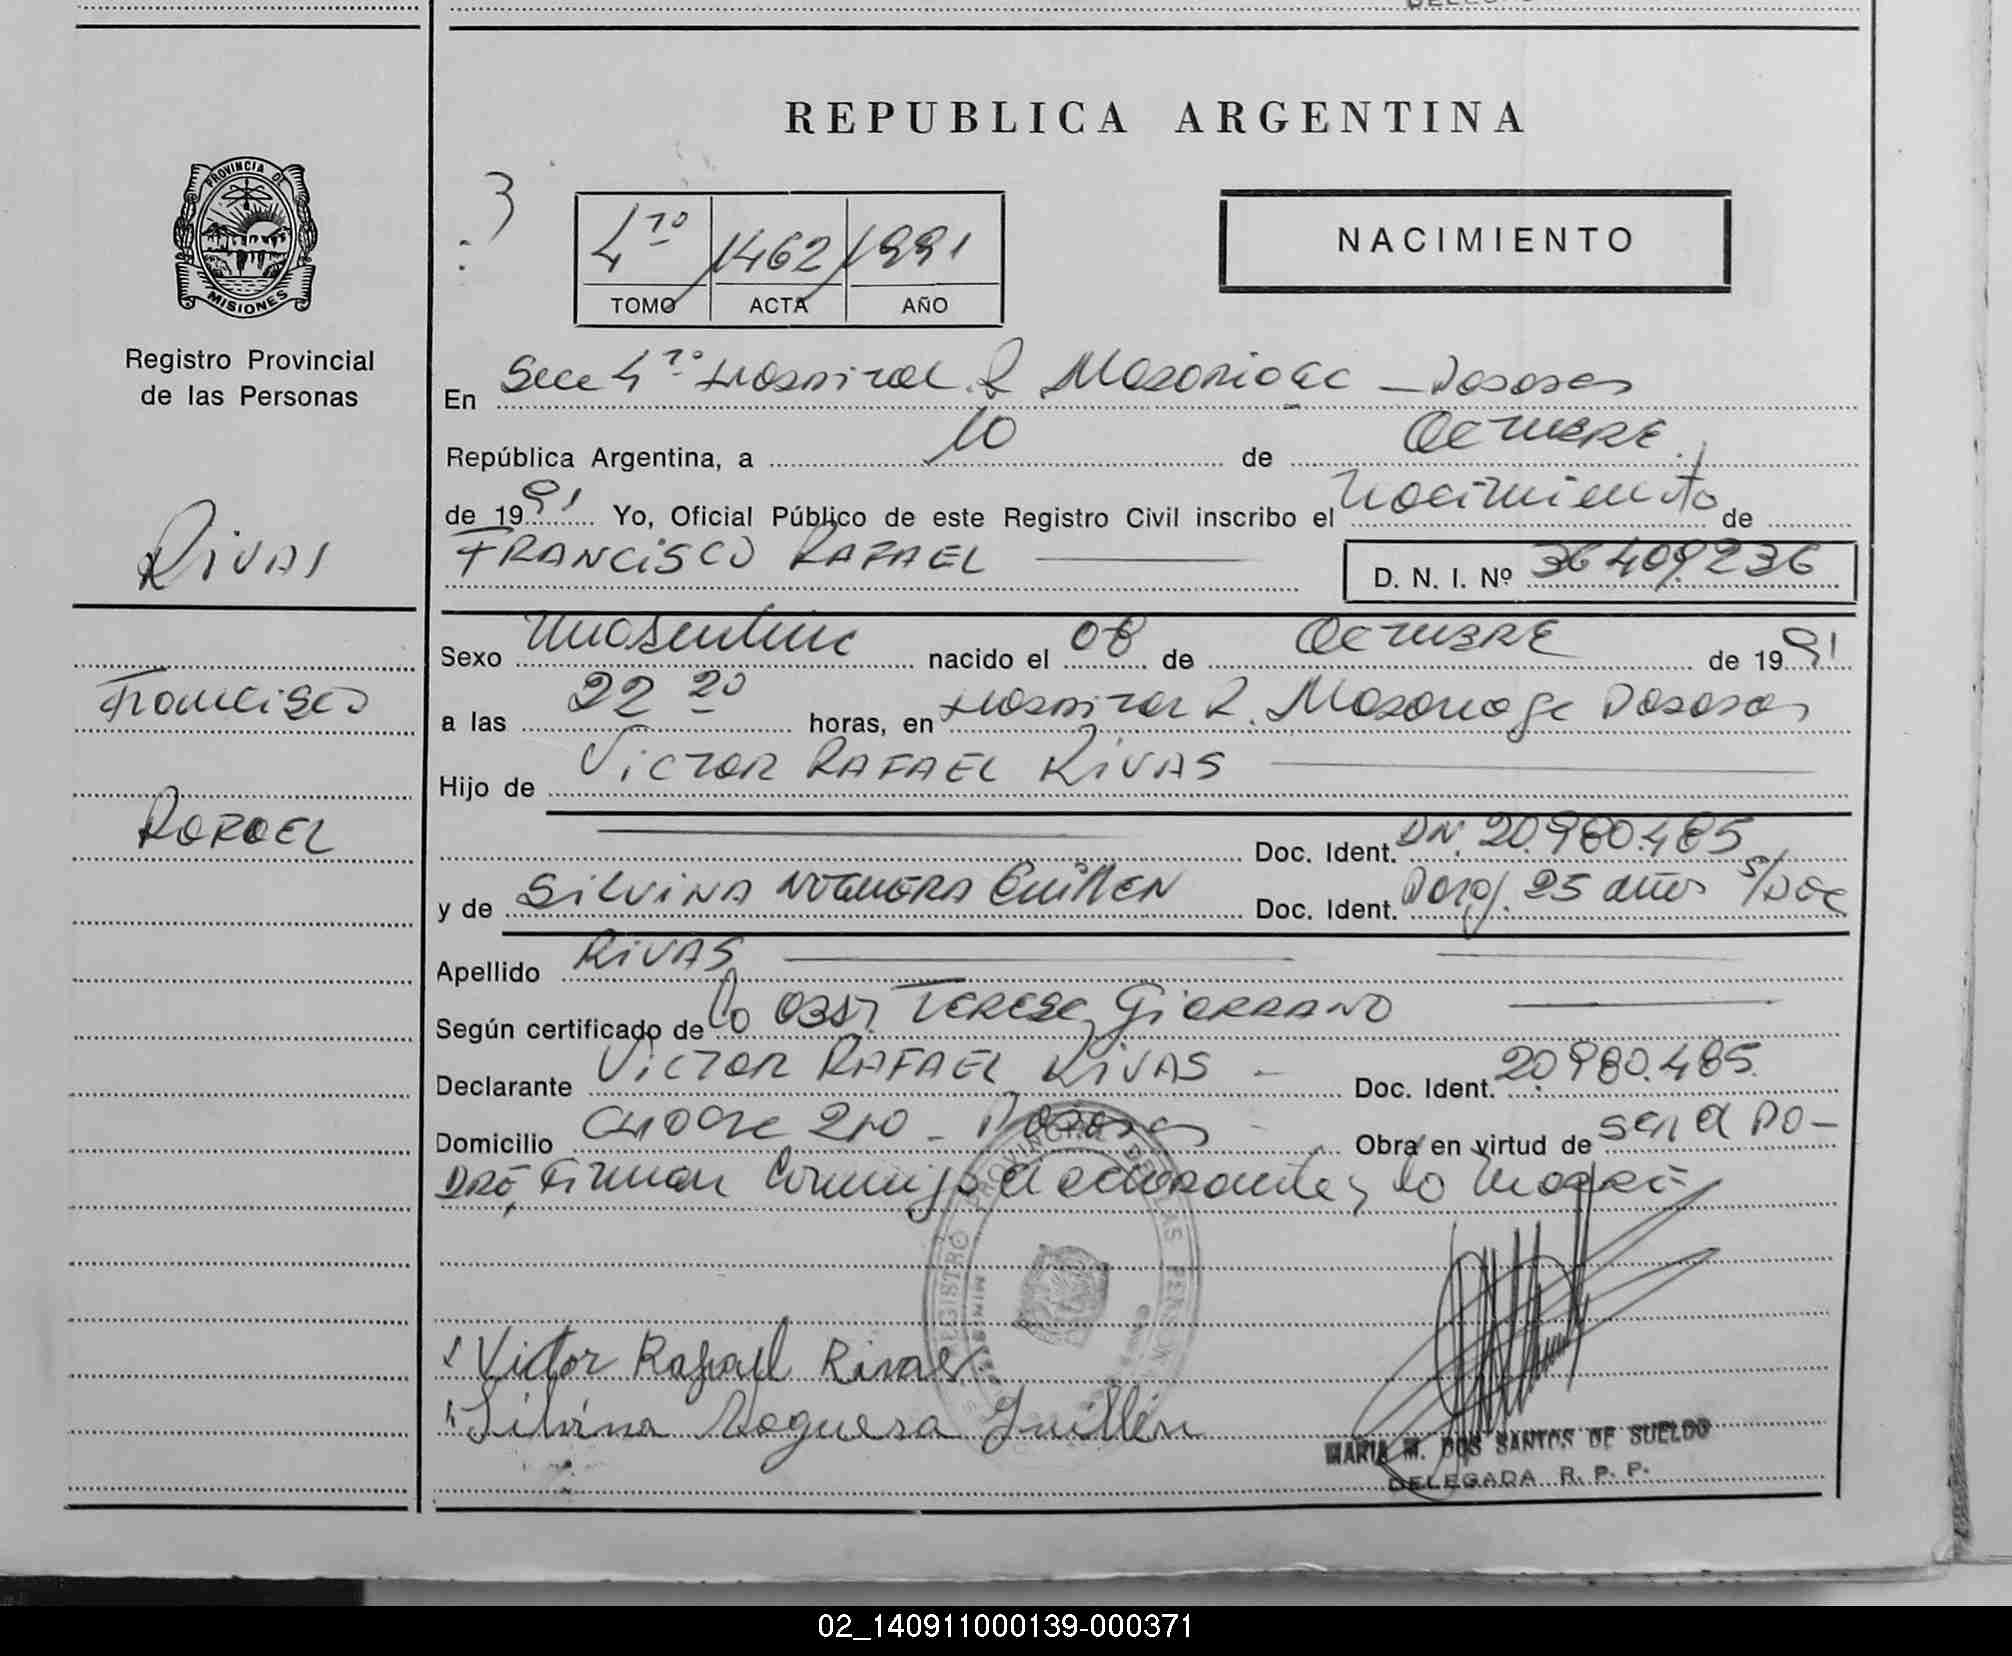 REPUBLICA ARGENTINA
PROVINCIA DE
MISIONES
Registro Provincial
de las Personas
3
4to 1462 1991
TOMO ACTA AÑO
NACIMIENTO
En Secc 4ta Hospital R Madariaga - Posadas
República Argentina, a 10 de OCTUBRE
de 1991 Yo, Oficial Público de este Registro Civil inscribo el nacimiento de
RIVAS
FRANCISCO RAFAEL
D. N. I. Nº 36409236
Sexo Masculino nacido el 08 de OCTUBRE de 1991
Francisco
a las 22 20 horas, en Hospital R. Madariaga Posadas
Hijo de VICTOR RAFAEL RIVAS
RAFAEL
Doc. Ident. DNI. 20.980.485
y de SILVINA NOGUERA GUILLEN Doc. Ident. 25 años S/DOC
Apellido RIVAS
Según certificado de la OBST. TERESA GIORDANO
Declarante VICTOR RAFAEL RIVAS - Doc. Ident. 20.980.485.
Domicilio 210 - Posadas Obra en virtud de ser el PA-
DRE, Firman Conmigo el declarante y la Madre
REGISTRO PROVINCIAL DE LAS PERSONAS
Victor Rafael Rivas
Silvina Noguera Guillén
MARIA M. DOS SANTOS DE SUELDO
DELEGADA R. P. P.
02_140911000139-000371